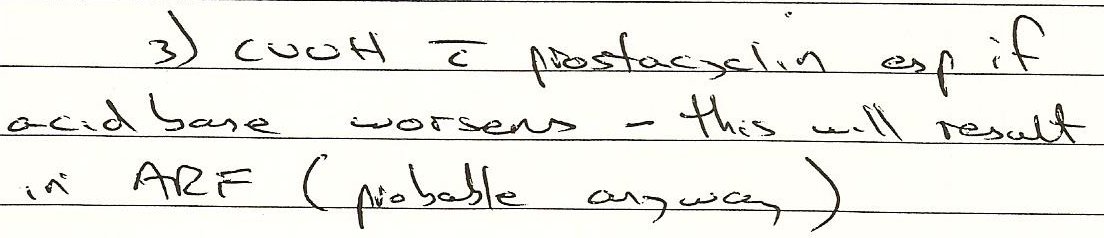 3) CVVH c̄ prostacyclin esp if
acid base worsens - this will result
in ARF (probable anyway)